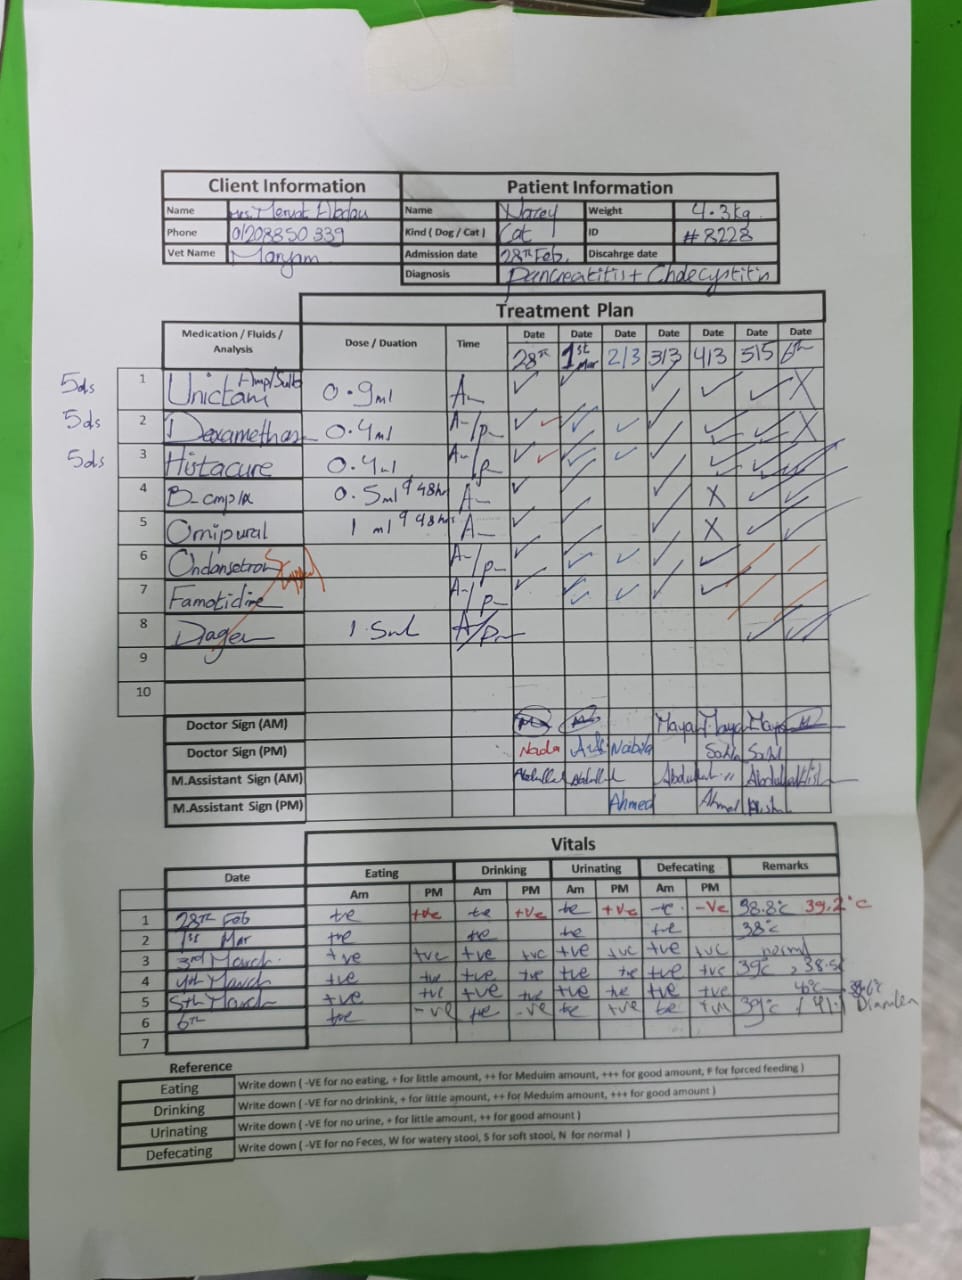 Client Information Patient Information
Name Mrs. Mervat Abdou Name Weight 4.3kg
Phone 01208850339 Kind ( Dog / Cat ) Cat ID #8228
Vet Name Maryam Admission date 28th Feb. Discahrge date
Diagnosis Pancreatitis + Cholecystitis
Treatment Plan
Medication / Fluids / Analysis Dose / Duation Time Date Date Date Date Date Date Date
28th 1st Mar 2/3 3/3 4/3 5/5 6th
5ds 1 Unictam Amp/Sulb 0.9ml A-
5ds 2 Dexametha 0.4ml A-/p-
5ds 3 Histacure 0.4ml A-/p-
4 B-cmplx 0.5ml q 48hr A-
5 Omipural 1 ml q 48hr A-
6 Ondansetron A-/p-
7 Famotidine A-/p-
8 1.5ml A/p-
9
10
Doctor Sign (AM) Maya Maya
Doctor Sign (PM) Nada Nabila
M.Assistant Sign (AM)
M.Assistant Sign (PM) Ahmed Ahmed
Vitals
Date Eating Drinking Urinating Defecating Remarks
Am PM Am PM Am PM Am PM
1 28th Feb +ve +ve +ve +ve +ve +ve -ve -ve 38.8°c 39.2°c
2 1st Mar +ve +ve +ve +ve 38°c
3 3rd March. +ve +ve +ve +ve +ve +ve +ve +ve normal
4 4th March +ve +ve +ve +ve +ve +ve +ve +ve 39°c , 38.5
5 5th March +ve +ve +ve +ve +ve +ve +ve +ve 40°c
6 6th +ve -ve +ve -ve +ve +ve +ve 39°c
7
Reference
Eating Write down ( -VE for no eating, + for little amount, ++ for Meduim amount, +++ for good amount, F for forced feeding )
Drinking Write down ( -VE for no drinkink, + for little amount, ++ for Meduim amount, +++ for good amount )
Urinating Write down ( -VE for no urine, + for little amount, ++ for good amount )
Defecating Write down ( -VE for no Feces, W for watery stool, S for soft stool, N for normal )